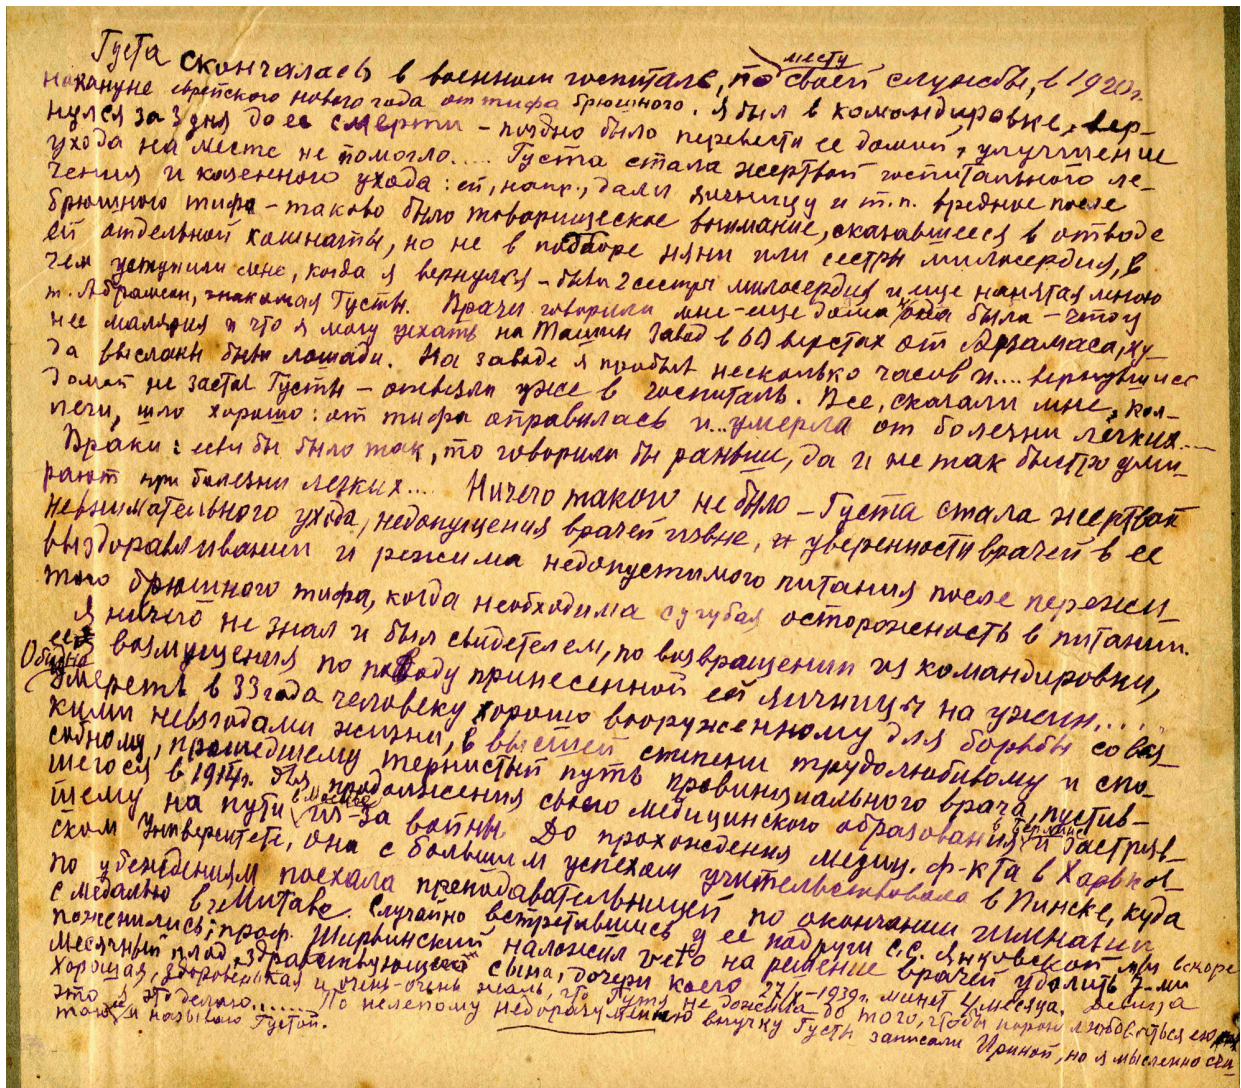 Густа скончалась в военном госпитале, по месту своей службы, в 1920 г.
накануне еврейского нового года от тифа брюшного. Я был в командировке, вер-
нулся за 3 дня до ее смерти – поздно было перевести ее домой, улучшение
ухода на месте не помогло.... Густа стала жертвой госпитального ле-
чения и казенного ухода: ей, напр., дали яичницу и т.п. вредное после
брюшного тифа – таково было товарищеское внимание, сказавшееся в отводе
ей отдельной комнаты, но не в подборе няни или сестры милосердия, в
чем уступили мне, когда я вернулся – были 2 сестры милосердия и еще нанятая мною
т. Абрамсон, знакомая Густы. Врачи говорили мне – еще дома она была – что у
нее малярия и что я могу уехать на Ташин завод в 60 верстах от Арзамаса, ку-
да высланы были лошади. На заводе я пробыл несколько часов и.... вернувшись
домой не застал Густы – отвезли уже в госпиталь. Все, сказали мне, кол-
леги, шло хорошо: от тифа оправилась и... умерла от болезни лёгких....
Враки: если бы было так, то говорили бы раньше, да и не так быстро уми-
рают при болезни легких.... Ничего такого не было – Густа стала жертвой
невнимательного ухода, недопущения врачей извне, и уверенности врачей в ее
выздоравливании и режима недопустимого питания после пережи-
того брюшного тифа, когда необходима сугубая осторожность в питании.
Я ничего не знал и был свидетелем, по возвращении из командировки,
ее возмущения по поводу принесенной ей яичницы на ужин....
Обидно умереть в 33 года человеку хорошо вооруженному для борьбы со вся-
кими невзгодами жизни, в высшей степени трудолюбивому и спо-
собному, прошедшему тернистый путь провинциального врача, пустив-
шегося в 1914 г. для продолжения своего медицинского образования в Берлине и застряв-
шему на пути в Москве из-за войны. До прохождения медиц. ф-кта в Харьков-
ском Университете, она с большим успехом учительствовала в Пинске, куда
по убеждениям поехала преподавательницей по окончании гимназии
с медалью в г. Митаве. Случайно встретившись у ее подруги С.С. Янковской мы вскоре
поженились; проф. Ширвинский наложил veto на решение врачей удалить 7-ми
месячный плод, здравствующего сына, дочери коего 27/X-1939 г. минет 4 месяца. Девица
хорошая, здоровенькая и очень-очень жаль, что Густа не дожила до того, чтобы порою любоваться ею,
это я делаю...... По нелепому недоразумению внучку Густы записали Ириной, но я мысленно
и называю Густой.